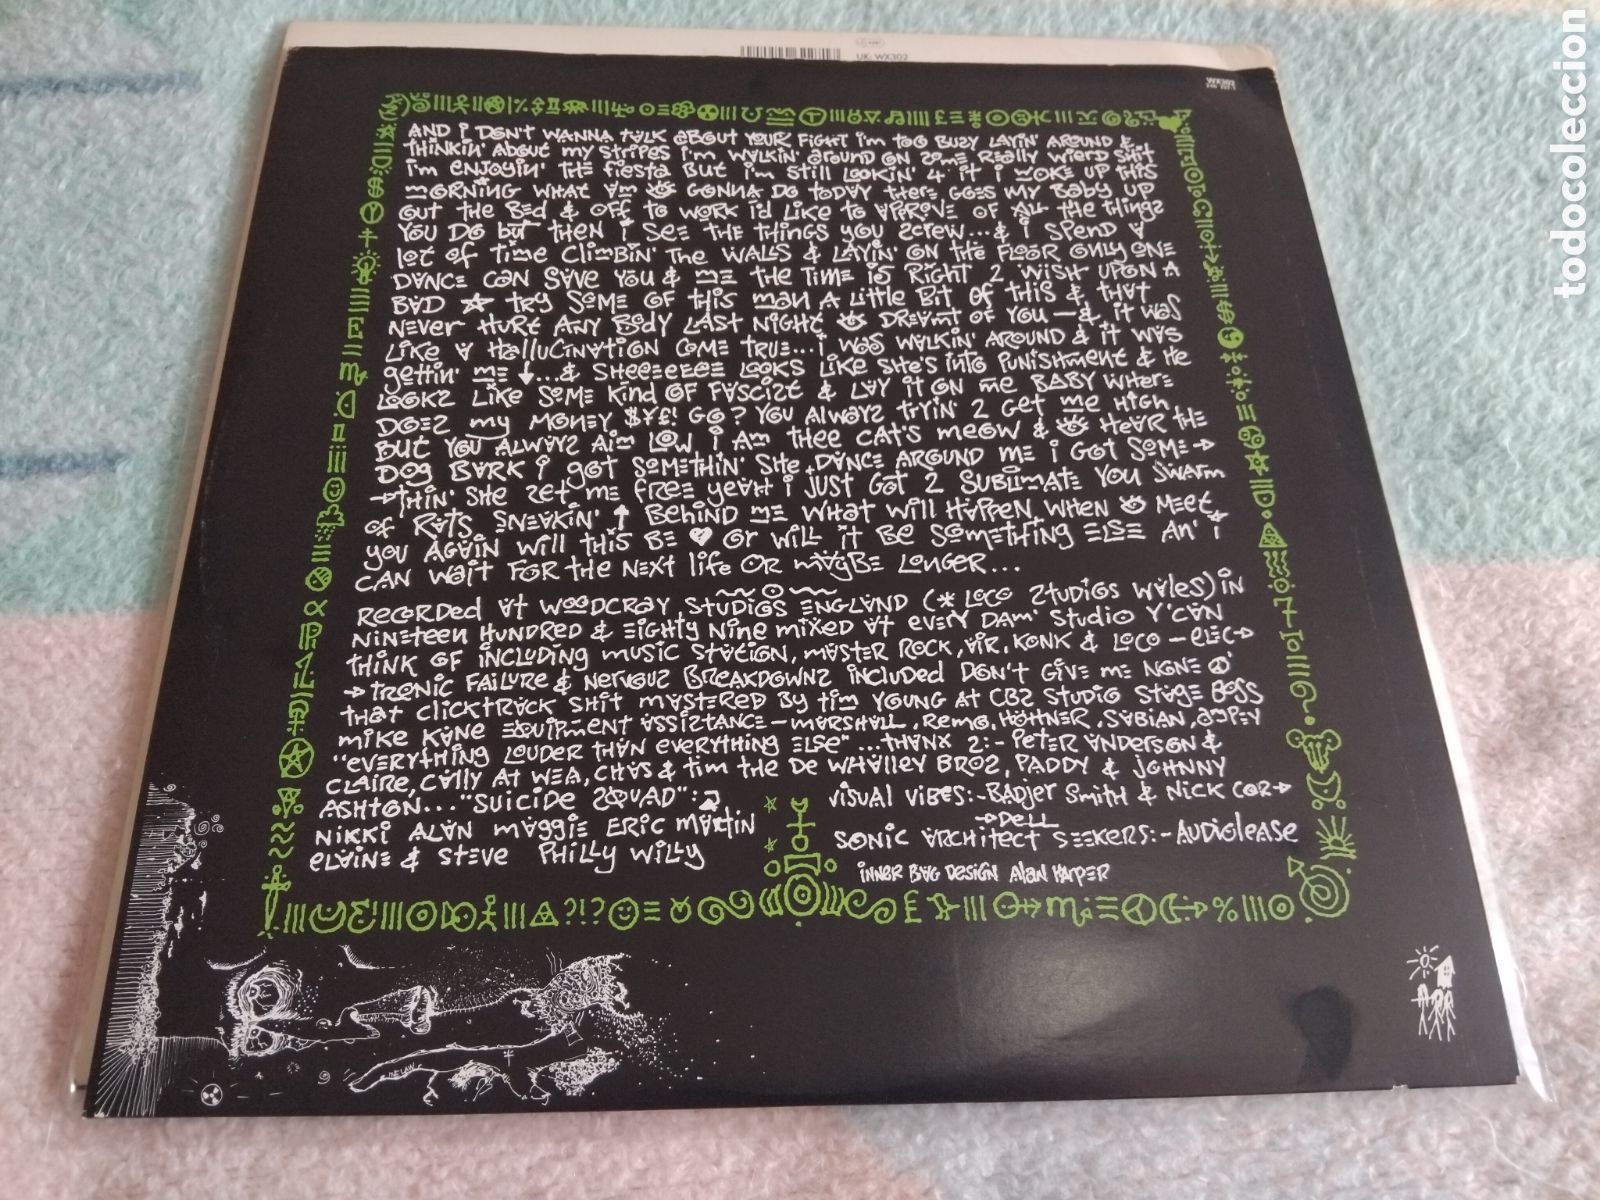 UK: WX302
WX302
AND i DON'T WANNA TALK ABOUT YOUR FIGHT i'm TOO BUZY LAYIN' AROUND &
THINKIN' ABOUT my STRIPES i'm WALKIN' AROUND ON SOME REALLY WIERD SHIT
i'm ENJOYIN' THE FiESTA BUT i'm STiLL LOOKIN' 4 iT i WOKE UP THIS
MORNING WHAT AM GONNA DO TODAY THERE GOES MY BABY UP
OUT THE BED & OFF TO WORK i'D LIKE TO APPROVE OF ALL THE THINGS
YOU DO BUT THEN i SEE THE THINGS YOU SCREW...& i SPEND A
LOT OF TIME CLIMBIN' THE WALLS & LAYIN' ON THE FLOOR ONLY ONE
DANCE CAN SAVE YOU & ME THE TIME IS RIGHT 2 WISH UPON A
BAD ☆ TRY SOME OF THIS MAN A LITTLE BIT OF THIS & THAT
NEVER HURT ANY BODY LAST NIGHT DREAMT OF YOU — & iT WAS
LIKE A HALLUCINATION COME TRUE...i WAS WALKIN' AROUND & iT WAS
GETTIN' ME ↓...& SHEEEEEE LOOKS LIKE SHE'S INTO PUNISHMENT & HE
LOOKZ LIKE SOME KIND OF FASCIZT & LAY iT ON ME BABY WHERE
DOEZ MY MONEY $¥£! GO? YOU ALWAYZ TRYIN' 2 GET ME HIGH
BUT YOU ALWAYZ AIM LOW i AM THEE CAT'S MEOW & HEAR THE
DOG BARK i GOT SOMETHIN' SHE DANCE AROUND ME i GOT SOME→
→THIN' SHE ZET ME FREE YEAH i JUST GOT 2 SUBLIMATE YOU SWARM
OF RATS SNEAKIN' ↑ BEHIND ME WHAT WILL HAPPEN WHEN MEET
YOU AGAIN WILL THIS BE ♥ OR WILL iT BE SOMETHING ELSE AN' i
CAN WAIT FOR THE NEXT LIFE OR MAYBE LONGER...
RECORDED AT WOODCRAY STUDIOS ENGLAND (* LOCO STUDIOS WALES) IN
NINETEEN HUNDRED & EIGHTY NINE MIXED AT EVERY DAM' STUDIO Y'CAN
THINK OF INCLUDING MUSIC STATION, MASTER ROCK, AIR, KONK & LOCO – ELEC→
→TRONIC FAILURE & NERVOUS BREAKDOWNZ INCLUDED DON'T GIVE ME NONE O'
THAT CLICKTRACK SHIT MASTERED BY TIM YOUNG AT CBZ STUDIO STAGE BOSS
MIKE KANE EQUIPMENT ASSIZTANCE – MARSHALL, REMO, HOHNER, SABIAN, AMPEG
"EVERYTHING LOUDER THAN EVERYTHING ELSE"...THANX 2:- PETER ANDERSON &
CLAIRE, CALLY AT WEA, CHAS & TIM THE DE WHALLEY BROZ, PADDY & JOHNNY
ASHTON..."SUICIDE SQUAD":
NIKKI ALAN MAGGIE ERIC MARTIN
ELAINE & STEVE PHILLY WILLY
VISUAL VIBES:- BADJER SMITH & NICK COR→
→DELL
SONIC ARCHITECT SEEKERS:- AUDIOLEASE
INNER BAG DESIGN ALAN HARPER
todocoleccion